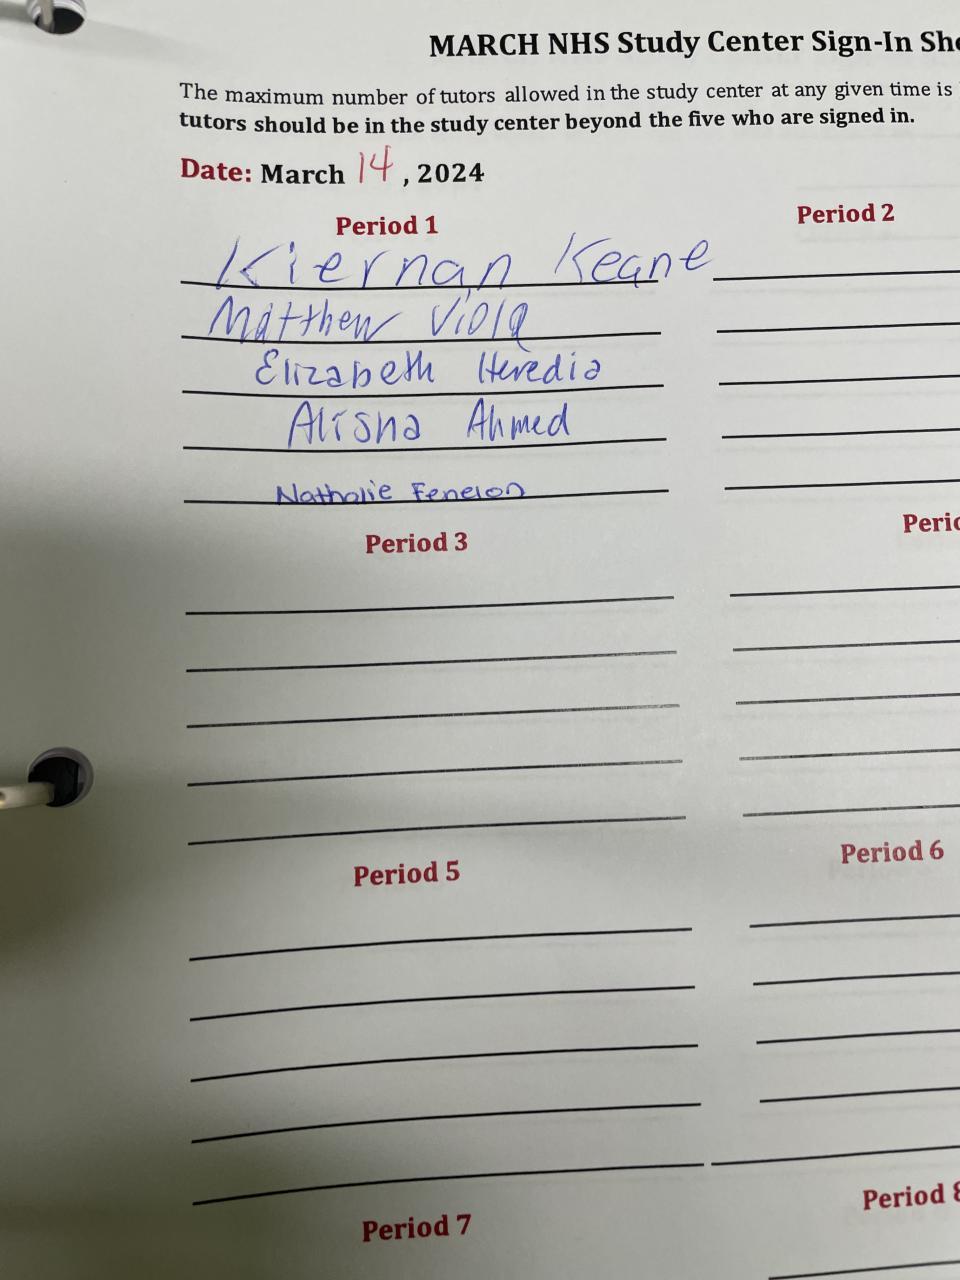 MARCH NHS Study Center Sign-In
The maximum number of tutors allowed in the study center at any given time is
tutors should be in the study center beyond the five who are signed in.
Date: March 14, 2024
Period 1
Period 2
Kiernan Keane
Matthew Viola
Elizabeth Heredia
Alisha Ahmed
Nathalie Fenelon
Period 3
Period 5
Period 6
Period 7
Period 8